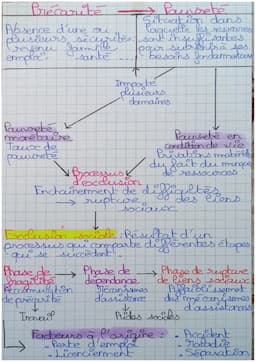 Précarité → Pauvreté
Absence d'une ou
plusieurs sécurités :
revenu, famille,
emploi, santé ...
Situation dans
laquelle les ressources
sont insuffisantes
pour subvenir à ses
besoins fondamentaux
Impacte
plusieurs
domaines
Pauvreté
monétaire
Taux de
pauvreté
Pauvreté en
condition de vie
Privations matérielles
du fait du manque
de ressources
Processus
d'exclusion
Enchaînement de difficultés
→ rupture des liens
sociaux
Exclusion sociale : Résultat d'un
processus qui comporte différentes étapes
qui se succèdent.
Phase de → Phase de → Phase de rupture
fragilité dépendance de liens sociaux
Accumulation
de précarité
Mécanismes
d'assistance
Affaiblissement
des mécanismes
d'assistances
Travail
Aides sociales
Facteurs à l'origine :
- Perte d'emploi
- Licenciement
- Accident
- Maladie
- Séparation